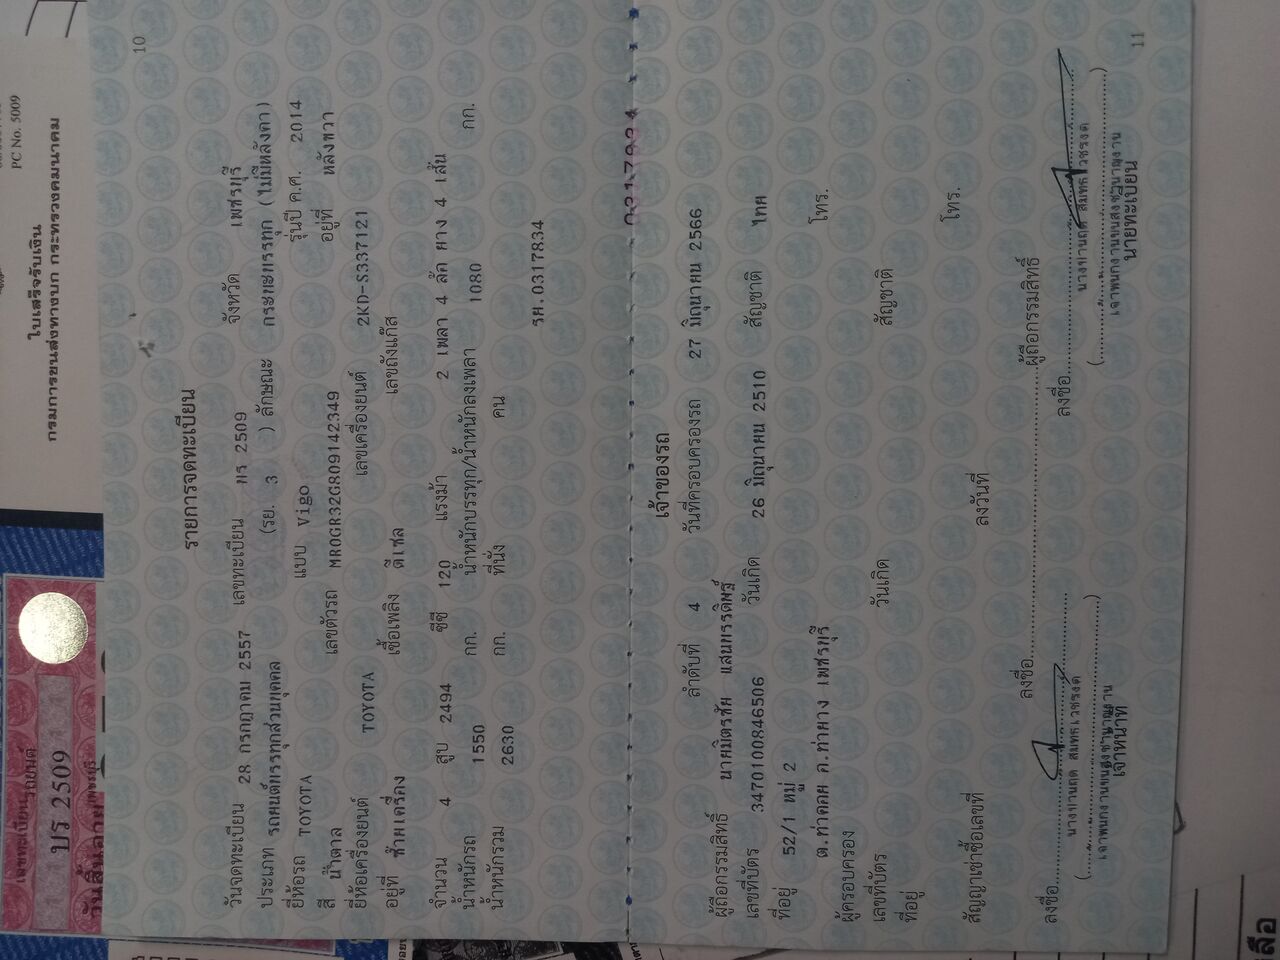 PC No. 5009
ใบเสร็จรับเงิน
กรมการขนส่งทางบก กระทรวงคมนาคม
เลขทะเบียน รถยนต์
บร 2509
เพชรบุรี
วันสิ้นอายุ
10
รายการจดทะเบียน
วันจดทะเบียน 28 กรกฎาคม 2557 เลขทะเบียน บร 2509 จังหวัด เพชรบุรี
ประเภท รถยนต์บรรทุกส่วนบุคคล (รย. 3 ) ลักษณะ กระบะบรรทุก (ไม่มีหลังคา)
ยี่ห้อรถ TOYOTA แบบ Vigo รุ่นปี ค.ศ. 2014
สี น้ำตาล เลขตัวรถ MR0GR32G809142349 อยู่ที่ หลังขวา
ยี่ห้อเครื่องยนต์ TOYOTA เลขเครื่องยนต์ 2KD-S337121
อยู่ที่ ซ้ายเครื่อง เชื้อเพลิง ดีเซล เลขถังแก๊ส
จำนวน 4 สูบ 2494 ซีซี 120 แรงม้า 2 เพลา 4 ล้อ ยาง 4 เส้น
น้ำหนักรถ 1550 กก. น้ำหนักบรรทุก/น้ำหนักลงเพลา 1080 กก.
น้ำหนักรวม 2630 กก. ที่นั่ง คน
รผ.0317834
เจ้าของรถ
ลำดับที่ 4 วันที่ครอบครองรถ 27 มิถุนายน 2566
ผู้ถือกรรมสิทธิ์ นายมิตรชัย แสนบรรดิษฐ์
เลขที่บัตร 3470100846506 วันเกิด 26 มิถุนายน 2510 สัญชาติ ไทย
ที่อยู่ 52/1 หมู่ 2
ต.ท่าคอย อ.ท่ายาง เพชรบุรี โทร.
ผู้ครอบครอง
เลขที่บัตร วันเกิด สัญชาติ
ที่อยู่ โทร.
สัญญาเช่าซื้อเลขที่ ลงวันที่
ลงชื่อ ผู้ถือกรรมสิทธิ์
ลงชื่อ ลงชื่อ
เจ้าพนักงานขนส่งชำนาญงาน เจ้าพนักงานขนส่งชำนาญงาน
เจ้าหน้าที่ นายทะเบียน
11